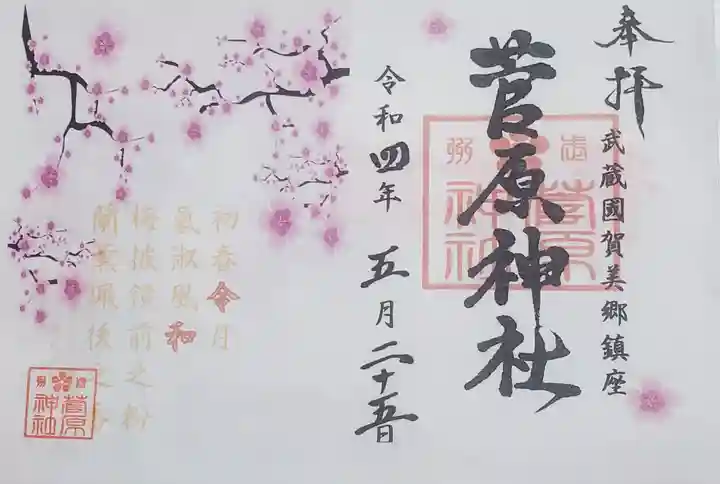 奉拝
武蔵國賀美郷鎮座
菅原神社
令和四年 五月二十五日
初春令月
氣淑風和
梅披鏡前之粉
蘭薫珮後之香
菅原
神社